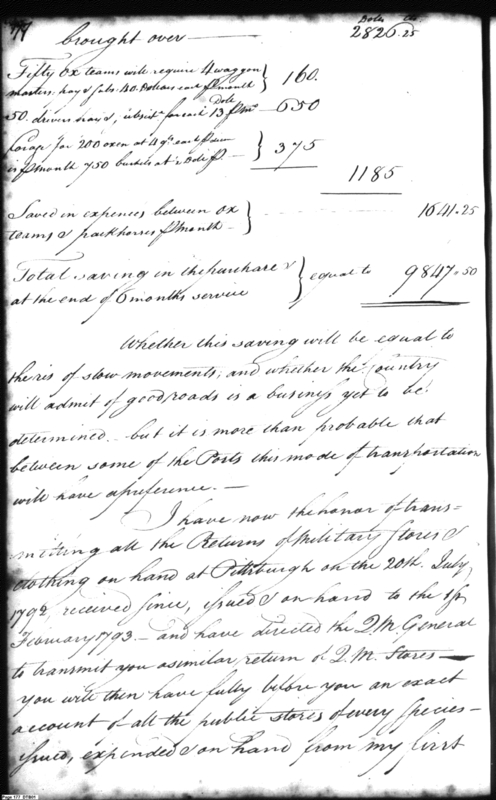 77
Dolls Cts
brought over — 2826.25
Fifty ox teams will require 4 waggon
masters, pay & subs. 40. Dollars each ⅌ month } 160.
50. drivers pay & subsiste. for each 13 Dolls ⅌ mo — 650
Forage for 200 oxen at 4 qts each ⅌ diem
is ⅌ month 750 bushels at ½ Doll ⅌. — } 375
1185
Saved in expences between ox
teams & packhorses ⅌ month — } 1641.25
Total saving in the purchase &
at the end of 6 months service } equal to 9847.50
Whether this saving will be equal to
the ris of slow movements, and whether the Country
will admit of good roads is a business yet to be
determined — but it is more than probable that
between some of the Posts this mode of transportation
will have a preference. —
I have now the honor of trans=
mitting all the Returns of Military Stores &
clothing on hand at Pittsburgh on the 20th. July
1792, received since, issued & on hand to the 1st
February 1793 — and have directed the Q.M. General
to transmit you a similar return of Q.M. Stores —
you will then have fully before you an exact
account of all the public stores of every species —
issued, expended & on hand from my first
Page 177